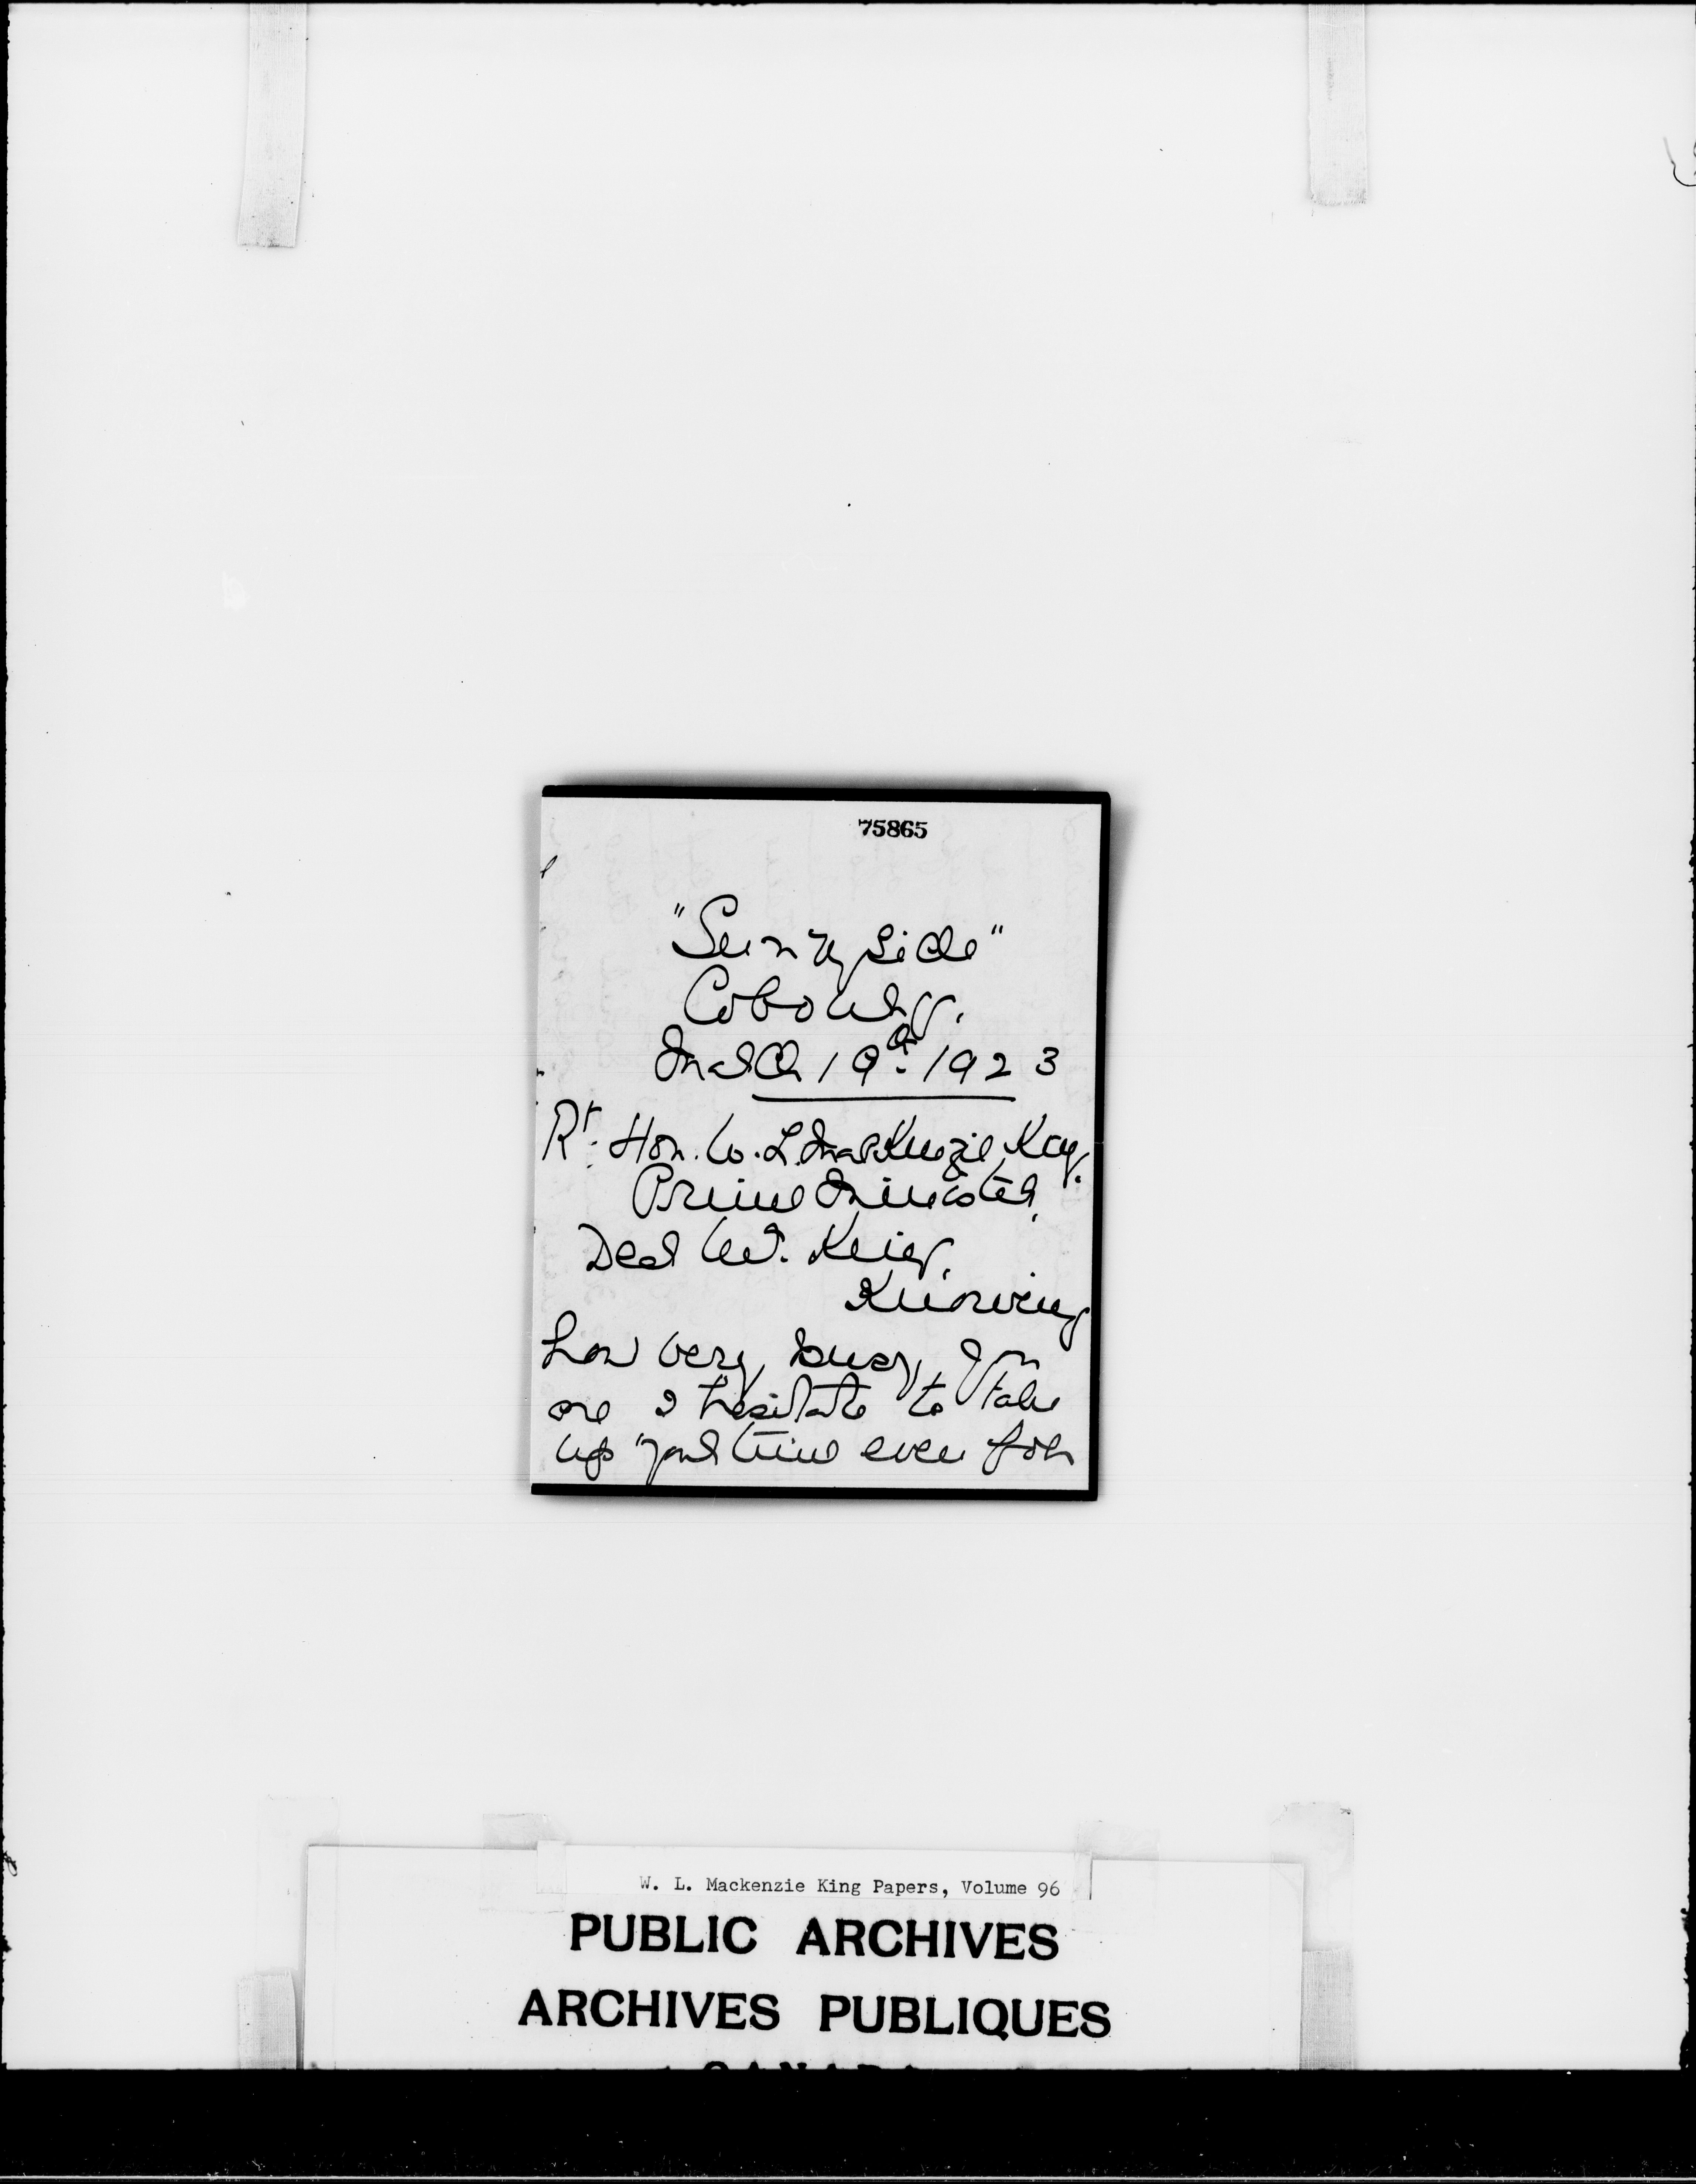 75865
"Sunnyside"
Cobourg.
March 19th. 1923
Rt. Hon. W. L. MacKenzie King.
Prime Minister,
Dear Mr. King,
Knowing
how very busy you
are I hesitate to take
up your time even for
W. L. Mackenzie King Papers, Volume 96
PUBLIC ARCHIVES
ARCHIVES PUBLIQUES
CANADA